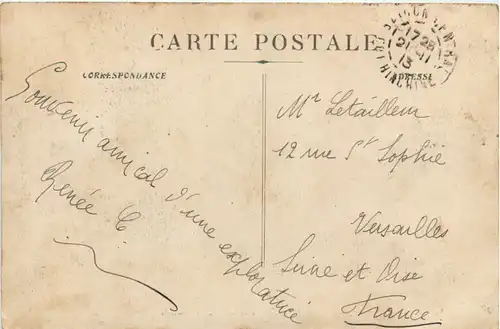 CARTE POSTALE
CORRESPONDANCE
ADRESSE
Souvenir amical d'une exploratrice
Renée C.
Mr Letailleur
12 rue St Sophie
Versailles
Seine et Oise
France
17 28
21 - 11
13
COCHINCHINE